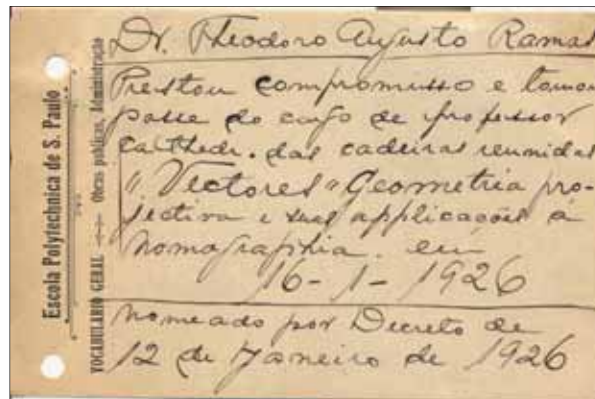 Escola Polytechnica de S. Paulo
VOCABULARIO GERAL Obras publicas, Administração
Dr. Theodoro Augusto Ramos
Prestou compromisso e tomou
posse do cargo de professor
cathedr. das cadeiras reunidas
"Vectores" Geometria pro-
jectiva e suas applicações á
Nomographia. em
16-1-1926
Nomeado por Decreto de
12 de Janeiro de 1926